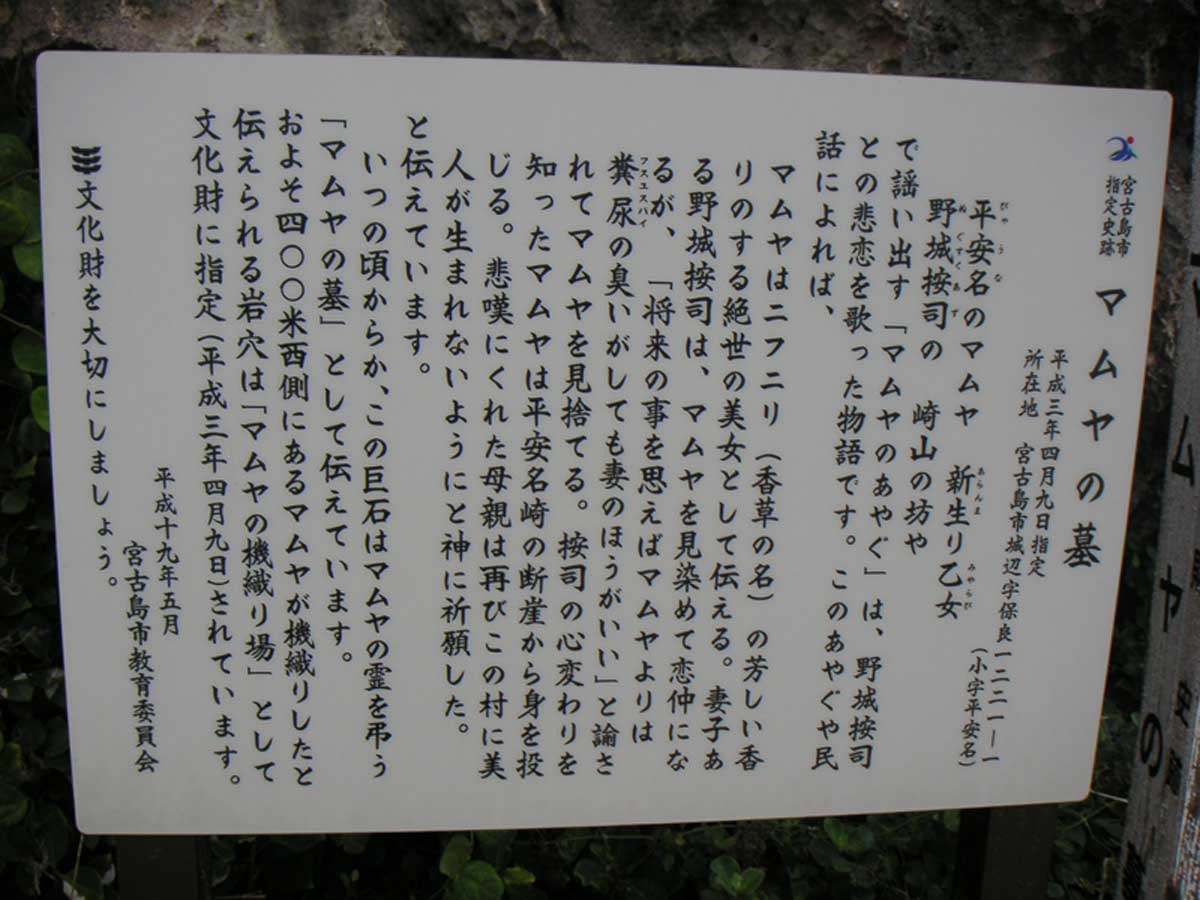 宮古島市
指定史跡
マムヤの墓
平成三年四月九日指定
所在地 宮古島市城辺字保良一二二一―一
(小字平安名)
平安名のマムヤ 新生り乙女
びゃうな
あらんま
みやらび
野城按司の 崎山の坊や
ぬぐすくあず
で謡い出す「マムヤのあやぐ」は、野城按司
との悲恋を歌った物語です。このあやぐや民
話によれば、
マムヤはニフニリ(香草の名)の芳しい香
りのする絶世の美女として伝える。妻子あ
る野城按司は、マムヤを見染めて恋仲にな
るが、「将来の事を思えばマムヤよりは
糞尿の臭いがしても妻のほうがいい」と諭さ
フスユスバイ
れてマムヤを見捨てる。按司の心変わりを
知ったマムヤは平安名崎の断崖から身を投
じる。悲嘆にくれた母親は再びこの村に美
人が生まれないようにと神に祈願した。
と伝えています。
いつの頃からか、この巨石はマムヤの霊を弔う
「マムヤの墓」として伝えています。
およそ四〇〇米西側にあるマムヤが機織りしたと
伝えられる岩穴は「マムヤの機織り場」として
文化財に指定(平成三年四月九日)されています。
平成十九年五月
宮古島市教育委員会
文化財を大切にしましょう。
ムヤの
史跡